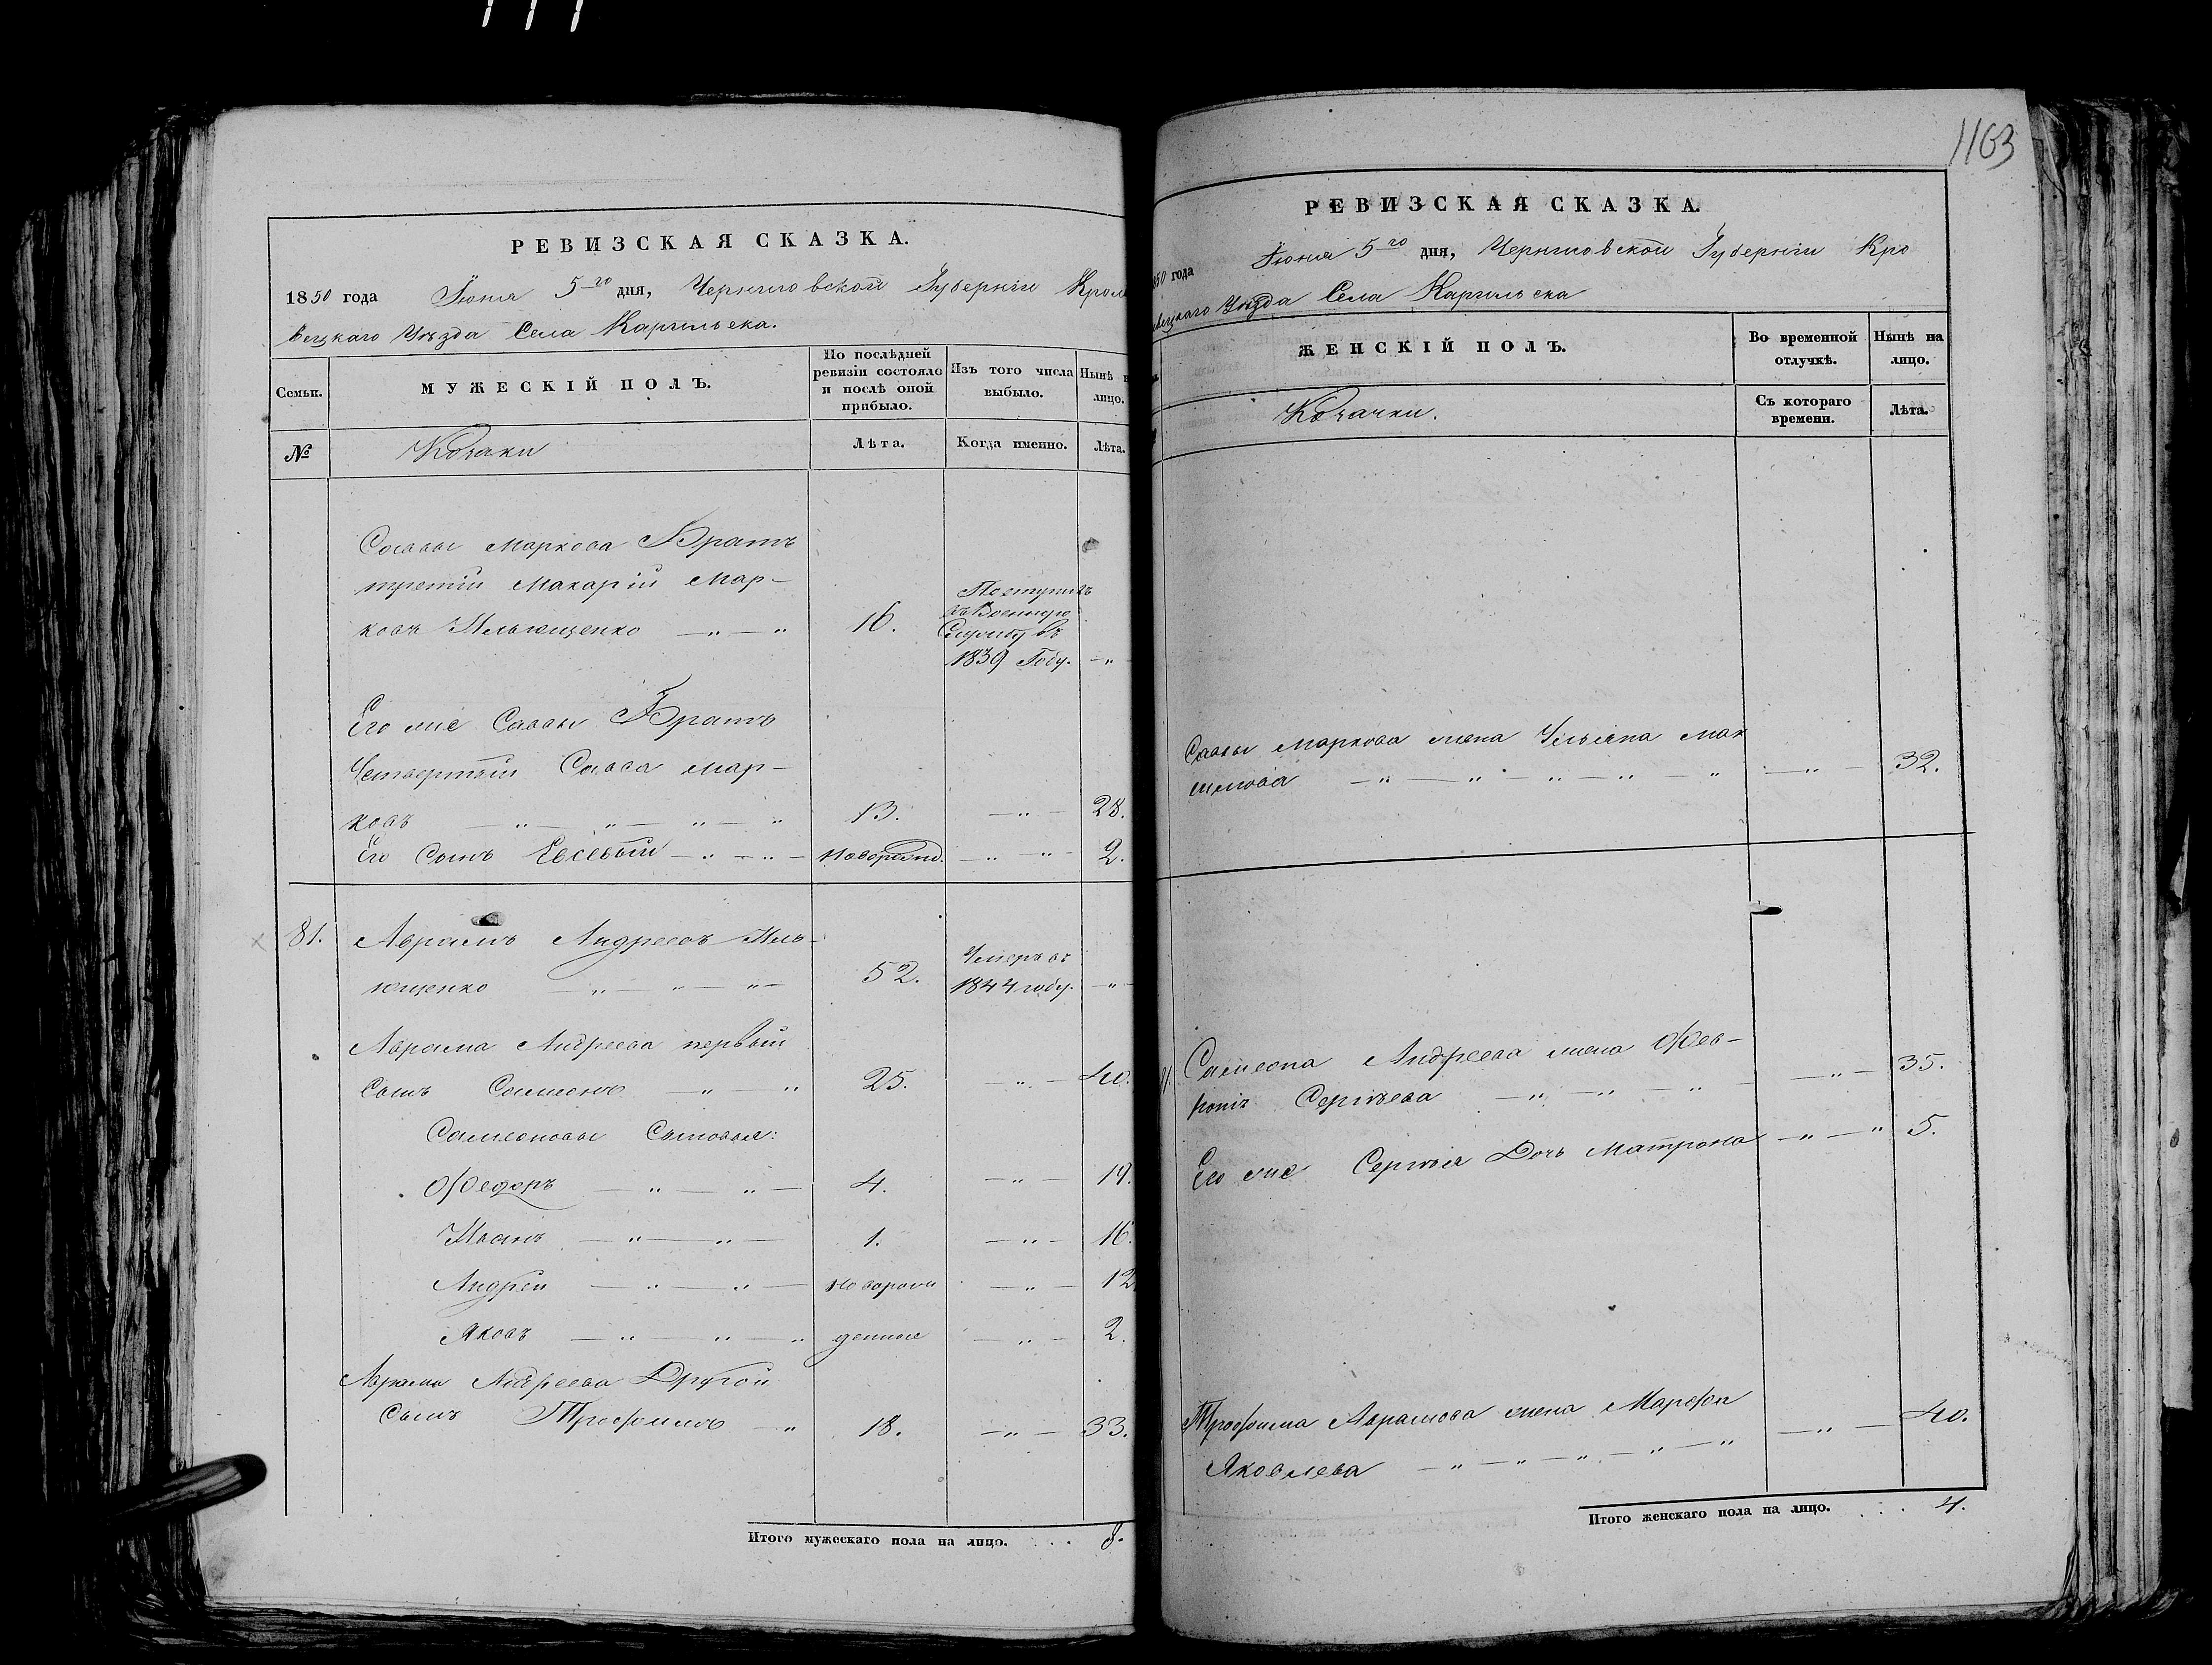 1163
РЕВИЗСКАЯ СКАЗКА.
1850 года Іюня 5го дня, Черниговской Губерніи Кроле
вецкаго Уѣзда Села Карыльска.
Семьи.
МУЖЕСКІЙ ПОЛЪ.
По послѣдней ревизіи состояло и послѣ оной прибыло.
Изъ того числа выбыло.
Нынѣ на лицо.
№
Козаки
Лѣта.
Когда именно.
Лѣта.
Саввы Маркова Братъ
третій Макарій Мар-
ковъ Ильющенко 16.
Поступилъ
въ Военную
Службу въ
1839 Году.
Его же Саввы Братъ
Четвертый Савва Мар-
ковъ 13. 28.
Его Сынъ Евсевый Новорожд. 2.
81. Аврамъ Андреевъ Иль-
ющенко 52. Умеръ въ 1844 году.
Аврама Андреева первый
Сынъ Самсонъ 25. 40.
Самсоновы Сыновья:
Федоръ 4. 19.
Иванъ 1. 16.
Андрей Новорож 12
Яковъ денные 2.
Аврама Андреева Другой
Сынъ Трофимъ 18. 33.
Итого мужескаго пола на лицо. . . . 8.
РЕВИЗСКАЯ СКАЗКА.
1850 года Іюня 5го дня, Черниговской Губерніи Кро
левецкаго Уѣзда Села Карыльска
ЖЕНСКІЙ ПОЛЪ.
Во временной отлучкѣ.
Нынѣ на лицо.
Козачки.
Съ котораго времени.
Лѣта.
Саввы Маркова жена Ульяна Мак
симова 32.
Самсона Андреева жена Фев-
ронія Сергѣева 35.
Его же Сергѣя Дочь Матрона 5.
Трофима Аврамова жена Марфа
Яковлева 40.
Итого женскаго пола на лицо. . . . 4.